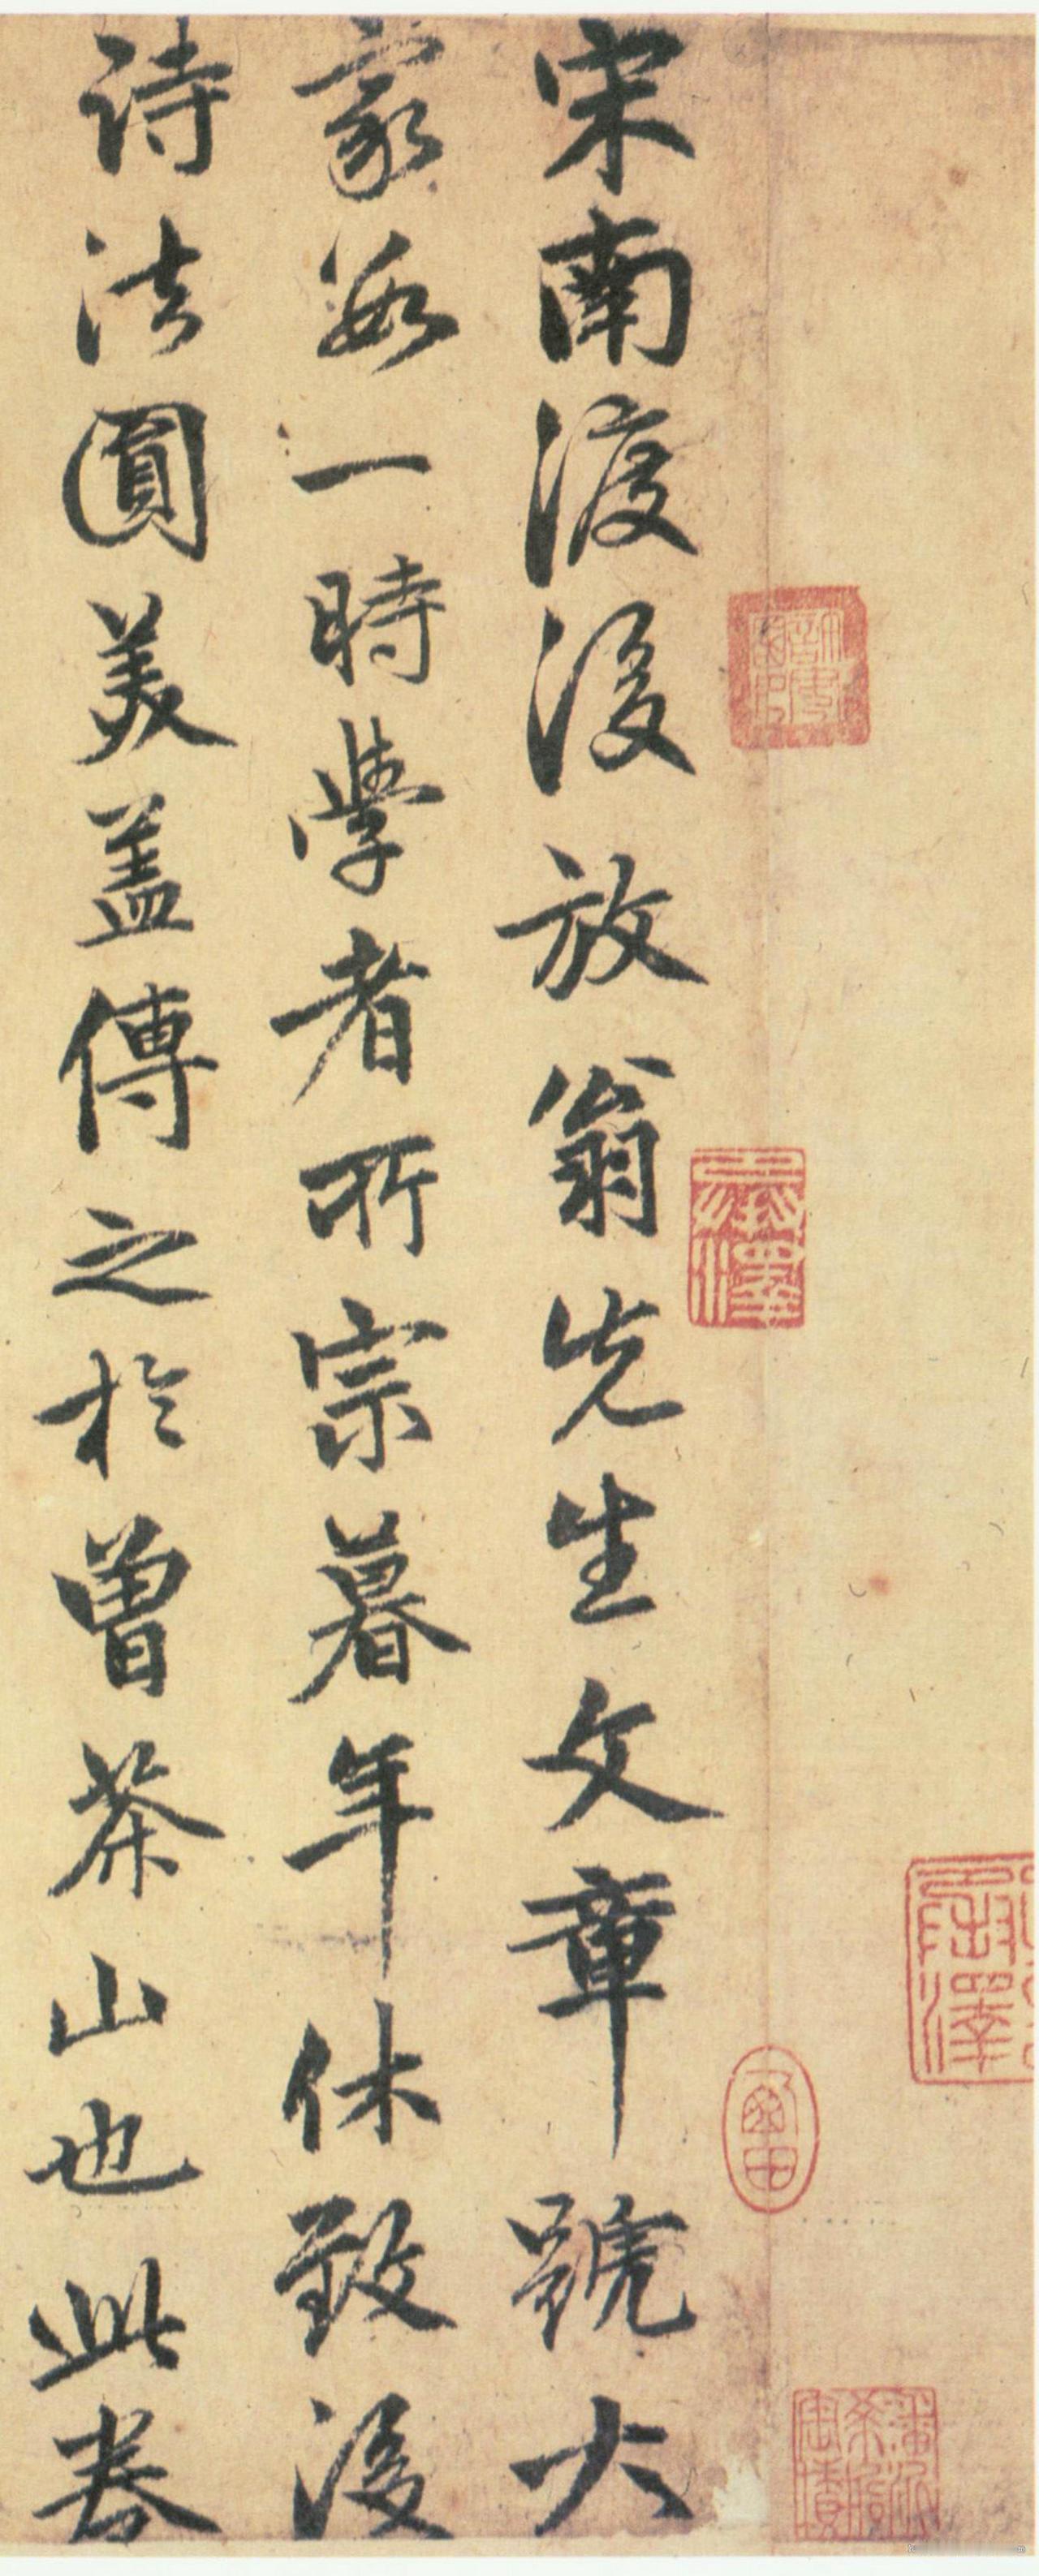 宋南渡後放翁先生文章號大
家為一時學者所宗暮年休致後
詩法圓美盖傳之於曾茶山也此卷